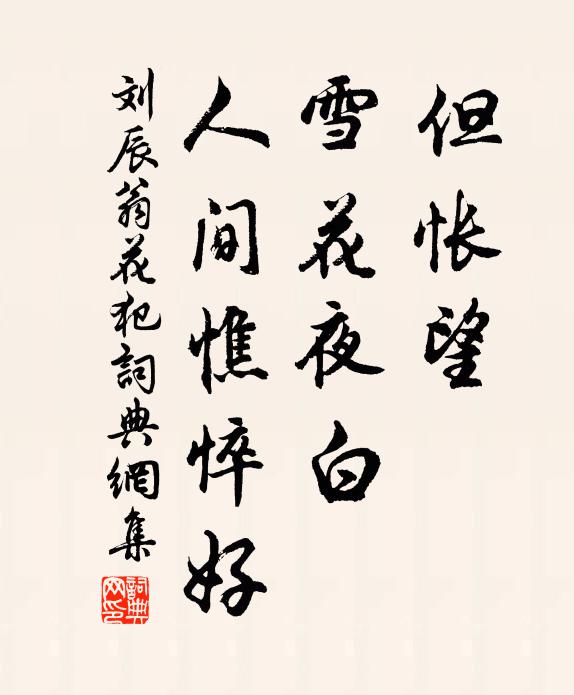 但怅望
雪花夜白
人间憔悴好
刘辰翁花犯詞典網集
詞典网印